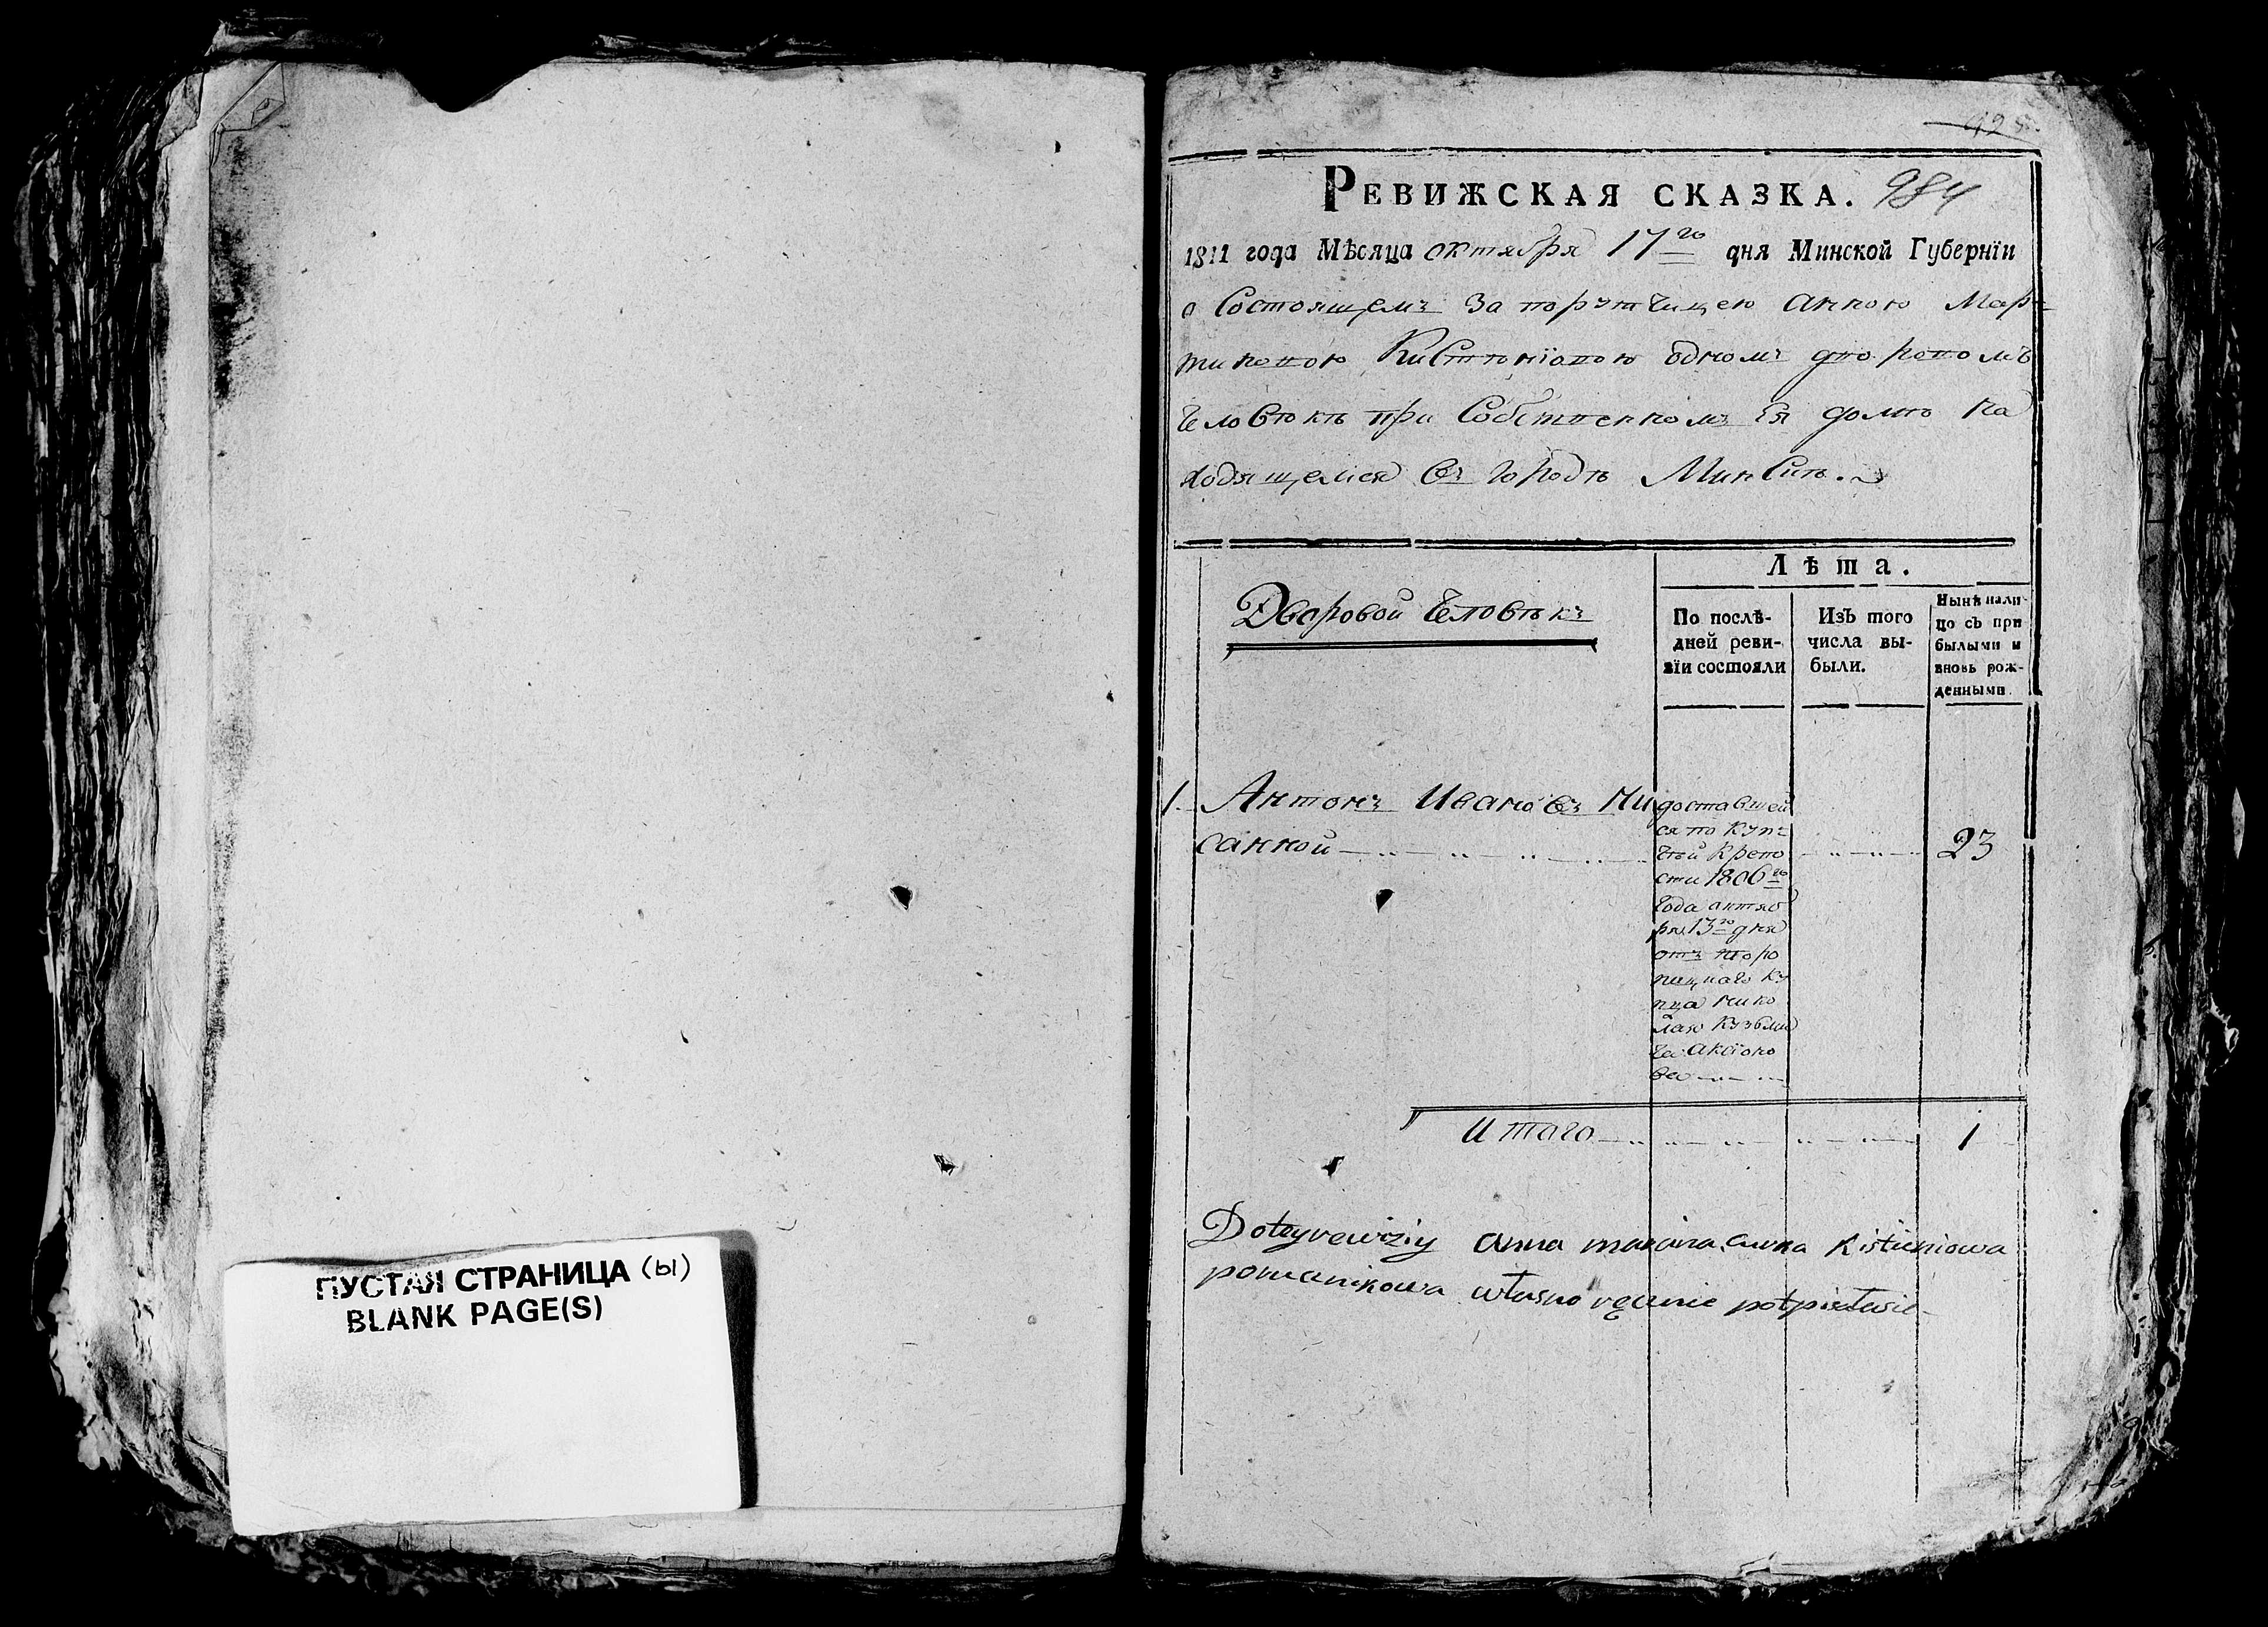 ПУСТАЯ СТРАНИЦА (Ы)
BLANK PAGE(S)
928.
РЕВИЖСКАЯ СКАЗКА. 984
1811 года Мѣсяца октября 17го дня Минской Губернїи
о Состоящемъ За порутчицею анною Мар-
тиновою Кистюнїовою одномъ дворовомъ
человѣкѣ при Собственномъ Ея домѣ на
ходящемся въ городѣ Минскѣ.
Дворовой человѣкъ
Лѣта.
По послѣ-
дней реви-
зїи состояли
Изъ того
числа вы-
были.
Нынѣ нали-
цо съ при
былыми и
вновь рож-
денными.
1. Антонъ Ивановъ Ни
санной
доставшей
ся по купч
чей крепо
сти 1806го
года октяб
ря 13го дня
отъ
купца Нико
лая Кузьми
ча Аксіоно
ва
23
Итого 1
Doteyrewiziy anna Kistiuniowa
własno ręcznie potpisałasie